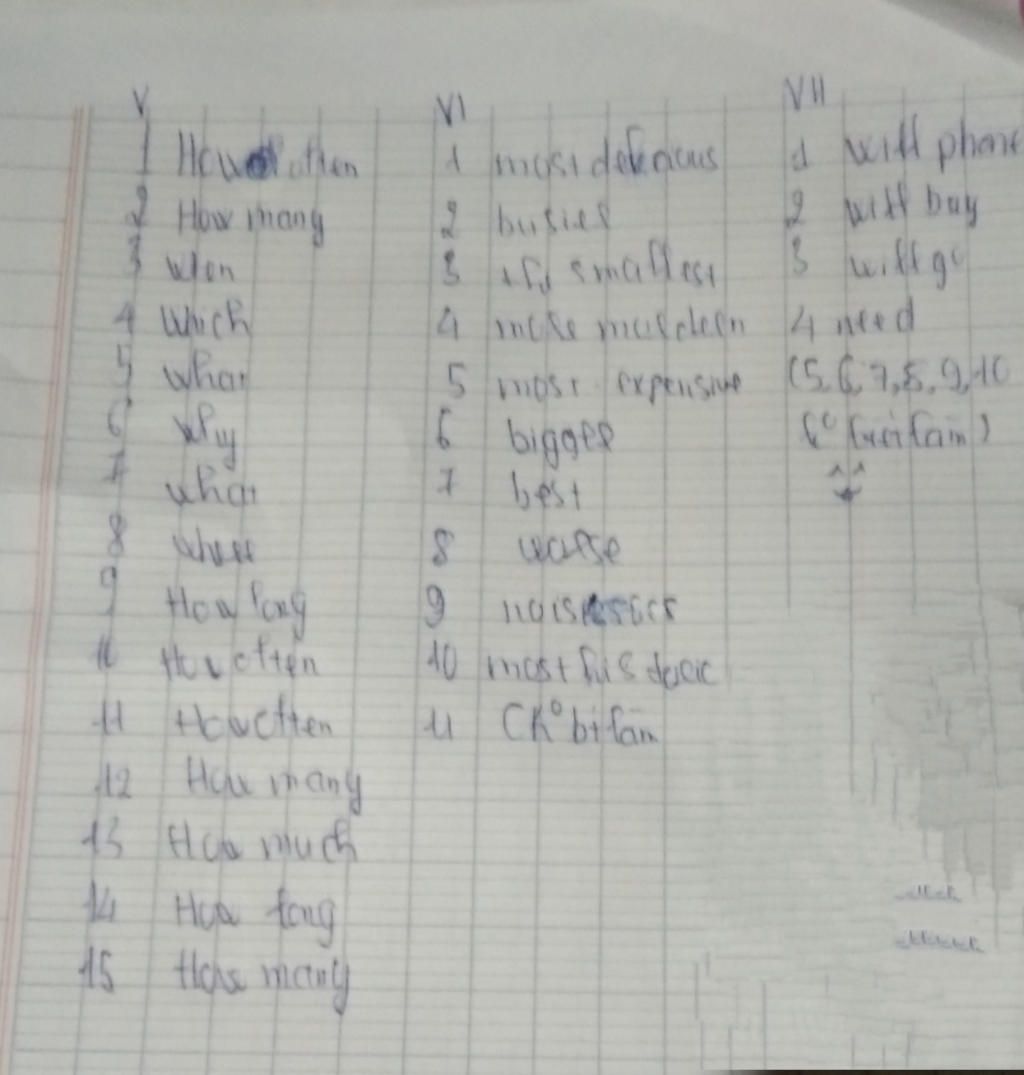 V
1 How often
2 How many
3 Wien
4 Which
5 What
6 Why
7 what
8
9 How long
10 How often
11 How often
12 How many
13 How much
14 How long
15 How many
VI
1 most delicious
2 busier
3 the smallest
4 more modern
5 most expensive
6 bigger
7 best
8 worse
9
10 most
11 (K° bi làm
VII
1 will phone
2 will buy
3 will go
4 need
(5, 6, 7, 8, 9, 10
làm)